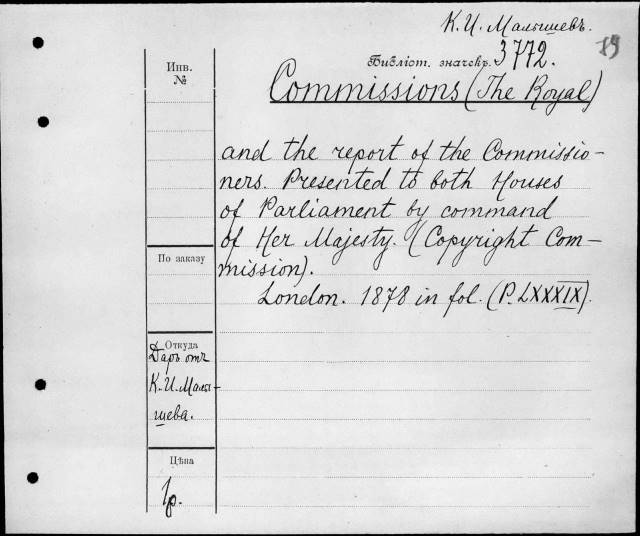 К. И. Малышевъ.
79
Библіот. значекъ. 3772.
Инв.
№
Commissions (The Royal)
and the report of the Commissio-
ners. Presented to both Houses
of Parliament by command
of Her Majesty. (Copyright Com-
mission).
London. 1878 in fol. (P. LXXXIX).
По заказу
Откуда
Даръ отъ
К. И. Малы-
шева.
Цѣна
1 р.